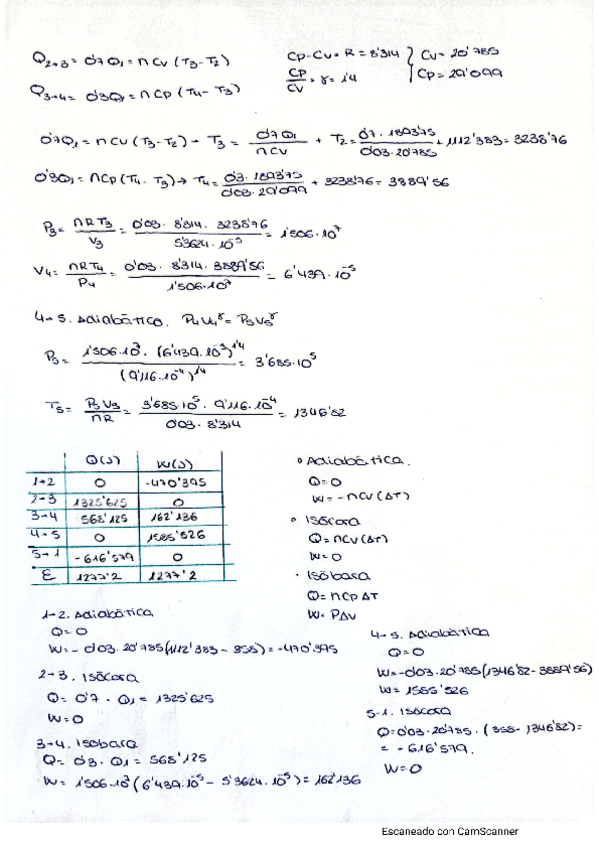 Q2→3 = 0'7Q1 = nCv (T3-T2)
Q3→4 = 0'3Q1 = nCp (T4 - T3)
Cp-Cv = R = 8'314 } Cv = 20'785
Cp/Cv = γ = 1'4 } Cp = 29'099
0'7Q1 = nCv (T3-T2) → T3 = 0'7Q1/nCv + T2 = 0'7·1893'75/0'03·20'785 + 1112'383 = 3238'76
0'3Q1 = nCp (T4-T3) → T4 = 0'3·1893'75/0'03·29'099 + 3238'76 = 3889'56
P3 = nRT3/V3 = 0'03·8'314·3238'76/5'3624·10^-5 = 1'506·10^7
V4 = nRT4/P4 = 0'03·8'314·3889'56/1'506·10^7 = 6'439·10^-5
4-5. Adiabática. P4V4^γ = P5V5^γ
P5 = 1'506·10^7·(6'439·10^-5)^1'4/(9'116·10^-4)^1'4 = 3'685·10^5
T5 = P5V5/nR = 3'685·10^5·9'116·10^-4/0'03·8'314 = 1346'82
Q(J) W(J)
1→2 0 -470'395
2→3 1325'625 0
3→4 568'125 162'136
4→5 0 1585'526
5→1 -616'579 0
Σ 1277'2 1277'2
• Adiabática.
Q=0
W= -nCv(ΔT)
• Isócora
Q=nCv(ΔT)
W=0
· Isóbara
Q=nCpΔT
W=PΔV
1-2. Adiabática
Q=0
W= -0'03·20'785(1112'383 - 358) = -470'395
2-3. Isócora
Q= 0'7·Q1 = 1325'625
W=0
3→4. Isobara
Q= 0'3·Q1 = 568'125
W= 1'506·10^7(6'439·10^-5 - 5'3624·10^-5) = 162'136
4-5. Adiabática
Q=0
W=-0'03·20'785(1346'82-3889'56)
W= 1585'526
5-1. Isócora
Q=0'03·20'785·(358-1346'82)=
= -616'579.
W=0
Escaneado con CamScanner